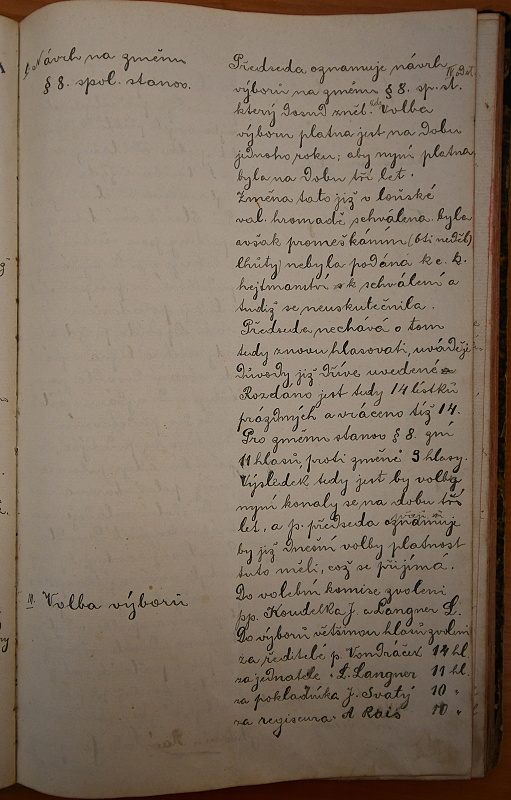 Návrh na změnu
§ 8. spol. stanov.
Předseda oznamuje návrh
výborů na změnu § 8. sp. st.
který dosud zněl: Volba
výboru platna jest na dobu
jednoho roku; aby nyní platna
byla na dobu tří let.
Změna tato již v loňské
val. hromadě schválena byla
avšak promeškáním (6ti neděl)
lhůty) nebyla podána k c. k.
hejtmanství k schválení a
tudiž se neuskutečnila.
Předseda nechává o tom
tedy znovu hlasovati, uváděje
důvody již dříve uvedené
Rozdáno jest tedy 14 lístků
prázdných a vráceno též 14.
Pro změnu stanov § 8. zní
11 hlasů, proti změně 3 hlasy.
Výsledek tedy jest by volby
nyní konaly se na dobu tří
let, a p. předseda oznamuje
by již dnešní volby platnost
tuto měli, což se přijímá.
IV. Volba výborů
Do volební komise zvoleni
pp. Koudelka J. a Langner L.
Do výborů většinou hlasů zvoleni
za ředitele p. Vondráček 14 hl.
za jednatele L. Langner 11 hl.
za pokladníka J. Svatý 10 "
za regiseura A Rais 10 "